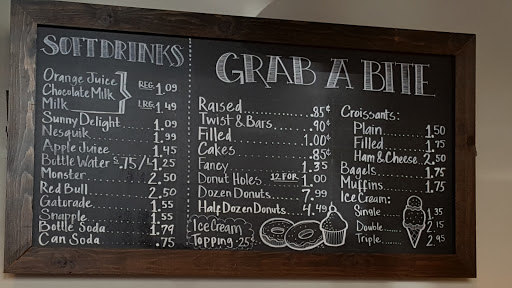 SOFT DRINKS
Orange Juice
Chocolate Milk REG. 1.09
Milk LRG. 1.49
Sunny Delight 1.09
Nesquik 1.99
Apple Juice 1.45
Bottle Water S .75/L 1.25
Monster 2.50
Red Bull 2.50
Gatorade 1.55
Snapple 1.55
Bottle Soda 1.79
Can Soda .75
GRAB A BITE
Raised .85¢
Twist & Bars .90¢
Filled 1.00¢
Cakes .85¢
Fancy 1.35
Donut Holes 12 FOR 1.00
Dozen Donuts 7.99
Half Dozen Donuts 4.49
Ice Cream
Topping .25
Croissants:
Plain 1.50
Filled 1.95
Ham & Cheese 2.50
Bagels 1.75
Muffins 1.75
Ice Cream:
Single 1.35
Double 2.15
Triple 2.95